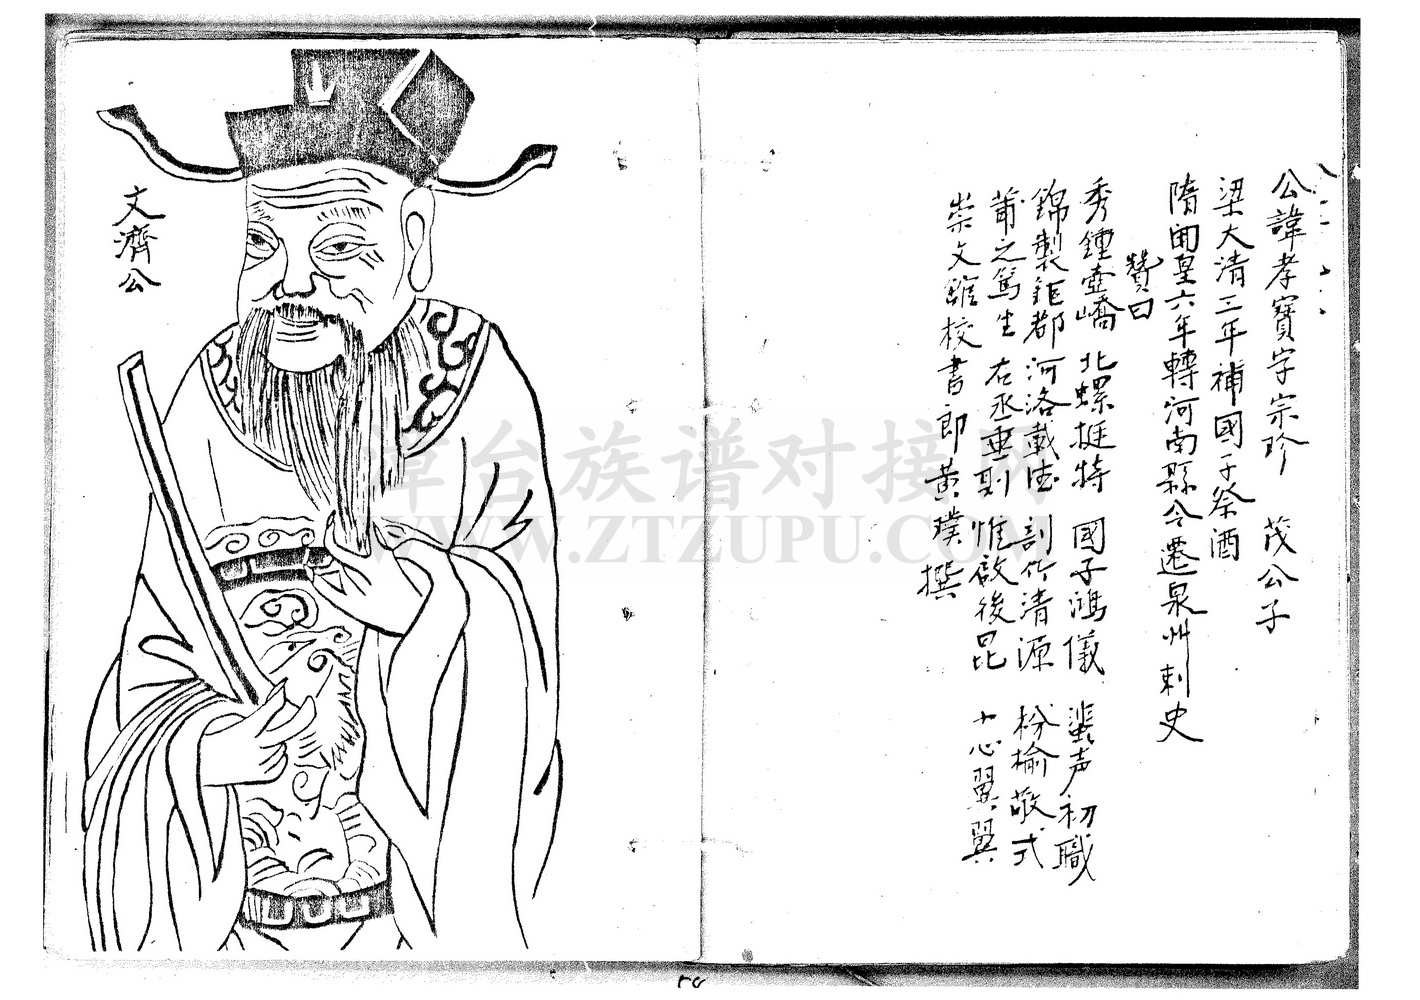 公諱孝寶字宗珍 茂公子
梁大清三年補國子祭酒
隋開皇六年轉河南縣令遷泉州刺史
贊曰
秀鍾壺嶠 北螺挺特 國子鴻儀 蜚声初職
錦製鉅都 河洛載德 剖竹清源 枌榆敬式
莆之篤生 右丞垂則 惟啟後昆 小心翼翼
崇文館校書郎黃璞撰
文濟公
台族谱对接
WWW.ZTZUPU.COM